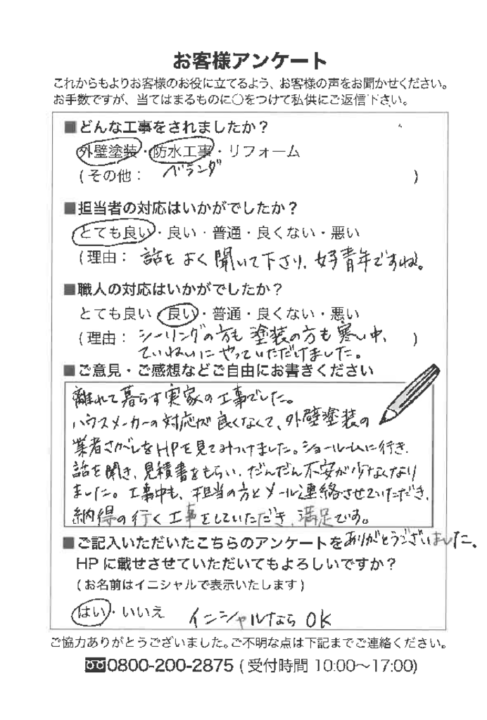 お客様アンケート
これからもよりお客様のお役に立てるよう、お客様の声をお聞かせください。
お手数ですが、当てはまるものに○をつけて私供にご返信下さい。
■どんな工事をされましたか？
外壁塗装・防水工事・リフォーム
(その他： ベランダ )
■担当者の対応はいかがでしたか？
とても良い・良い・普通・良くない・悪い
(理由： 話をよく聞いて下さり、好青年ですね。
■職人の対応はいかがでしたか？
とても良い・良い・普通・良くない・悪い
(理由： シーリングの方も塗装の方も寒い中、 )
ていねいにやっていただけました。
■ご意見・ご感想などご自由にお書きください
離れて暮らす実家の工事でした。
ハウスメーカーの対応が良くなくて、外壁塗装の
業者さがしをHPを見てみつけました。ショールームに行き、
話を聞き、見積書をもらい、だんだん不安が少なくなり
ました。工事中も、担当の方とメール連絡させていただき、
納得の行く工事をしていただき、満足です。
ありがとうございました。
■ご記入いただいたこちらのアンケートを
HPに載せさせていただいてもよろしいですか？
(お名前はイニシャルで表示いたします)
はい・いいえ イニシャルなら OK
ご協力ありがとうございました。ご不明な点は下記までご連絡ください。
0800-200-2875 (受付時間 10:00～17:00)